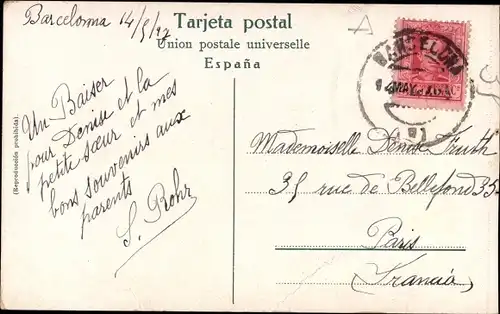 Barcelona 14/5/12
Tarjeta postal
Union postale universelle
España
A
BARCELONA
14 MAY
(Reproducción prohibida).
Un Baiser
pour Denise et la
petite sœur et mes
bons souvenirs aux
parents
S. Rohr
Mademoiselle Denise
35 rue de Bellefond 35
Paris
(Francia)